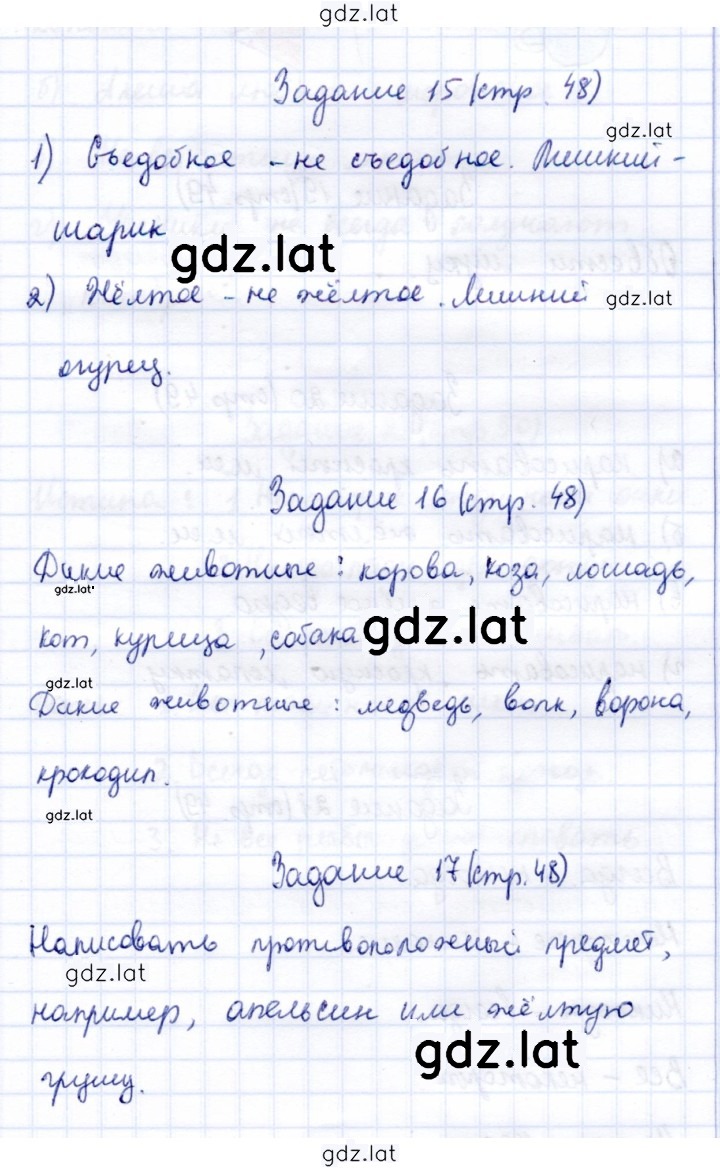 gdz.lat
Задание 15 (стр. 48)
gdz.lat
1) Съедобное - не съедобное. Лишний -
шарик
gdz.lat
2) Жёлтое - не жёлтое. Лишний
gdz.lat
огурец.
Задание 16 (стр. 48)
Дикие животные: корова, коза, лошадь,
gdz.lat
кот, курица, собака
gdz.lat
gdz.lat
Дикие животные: медведь, волк, ворона,
крокодил.
gdz.lat
Задание 17 (стр. 48)
Написовать противоположный предмет,
gdz.lat
например, апельсин или жёлтую
gdz.lat
грушу.
gdz.lat